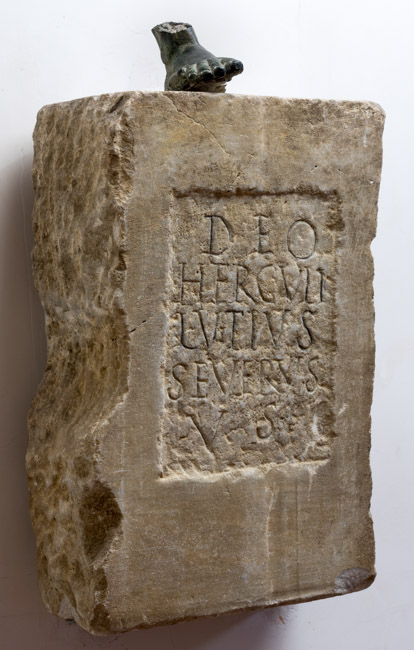 DEO
HERCVLI
LVTIVS
SEVERVS
V · S ·